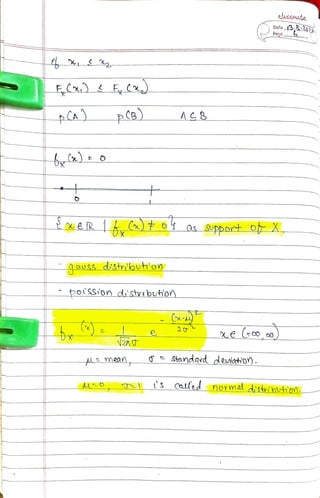 classmate
Date
Page
if x₁ ≤ x₂
Fₓ(x₁) ≤ Fₓ(x₂)
p(A) p(B) A ⊆ B
fₓ(x) = 0
0 1
{x ∈ R | fₓ(x) ≠ 0} as support of X
- gauss distribution
- poission distribution
fₓ(x) = 1/√2πσ e^-(x-μ)²/2σ² x ∈ (-∞, ∞)
μ = mean, σ = standard deviation.
μ=0, σ=1 is called normal distribution.